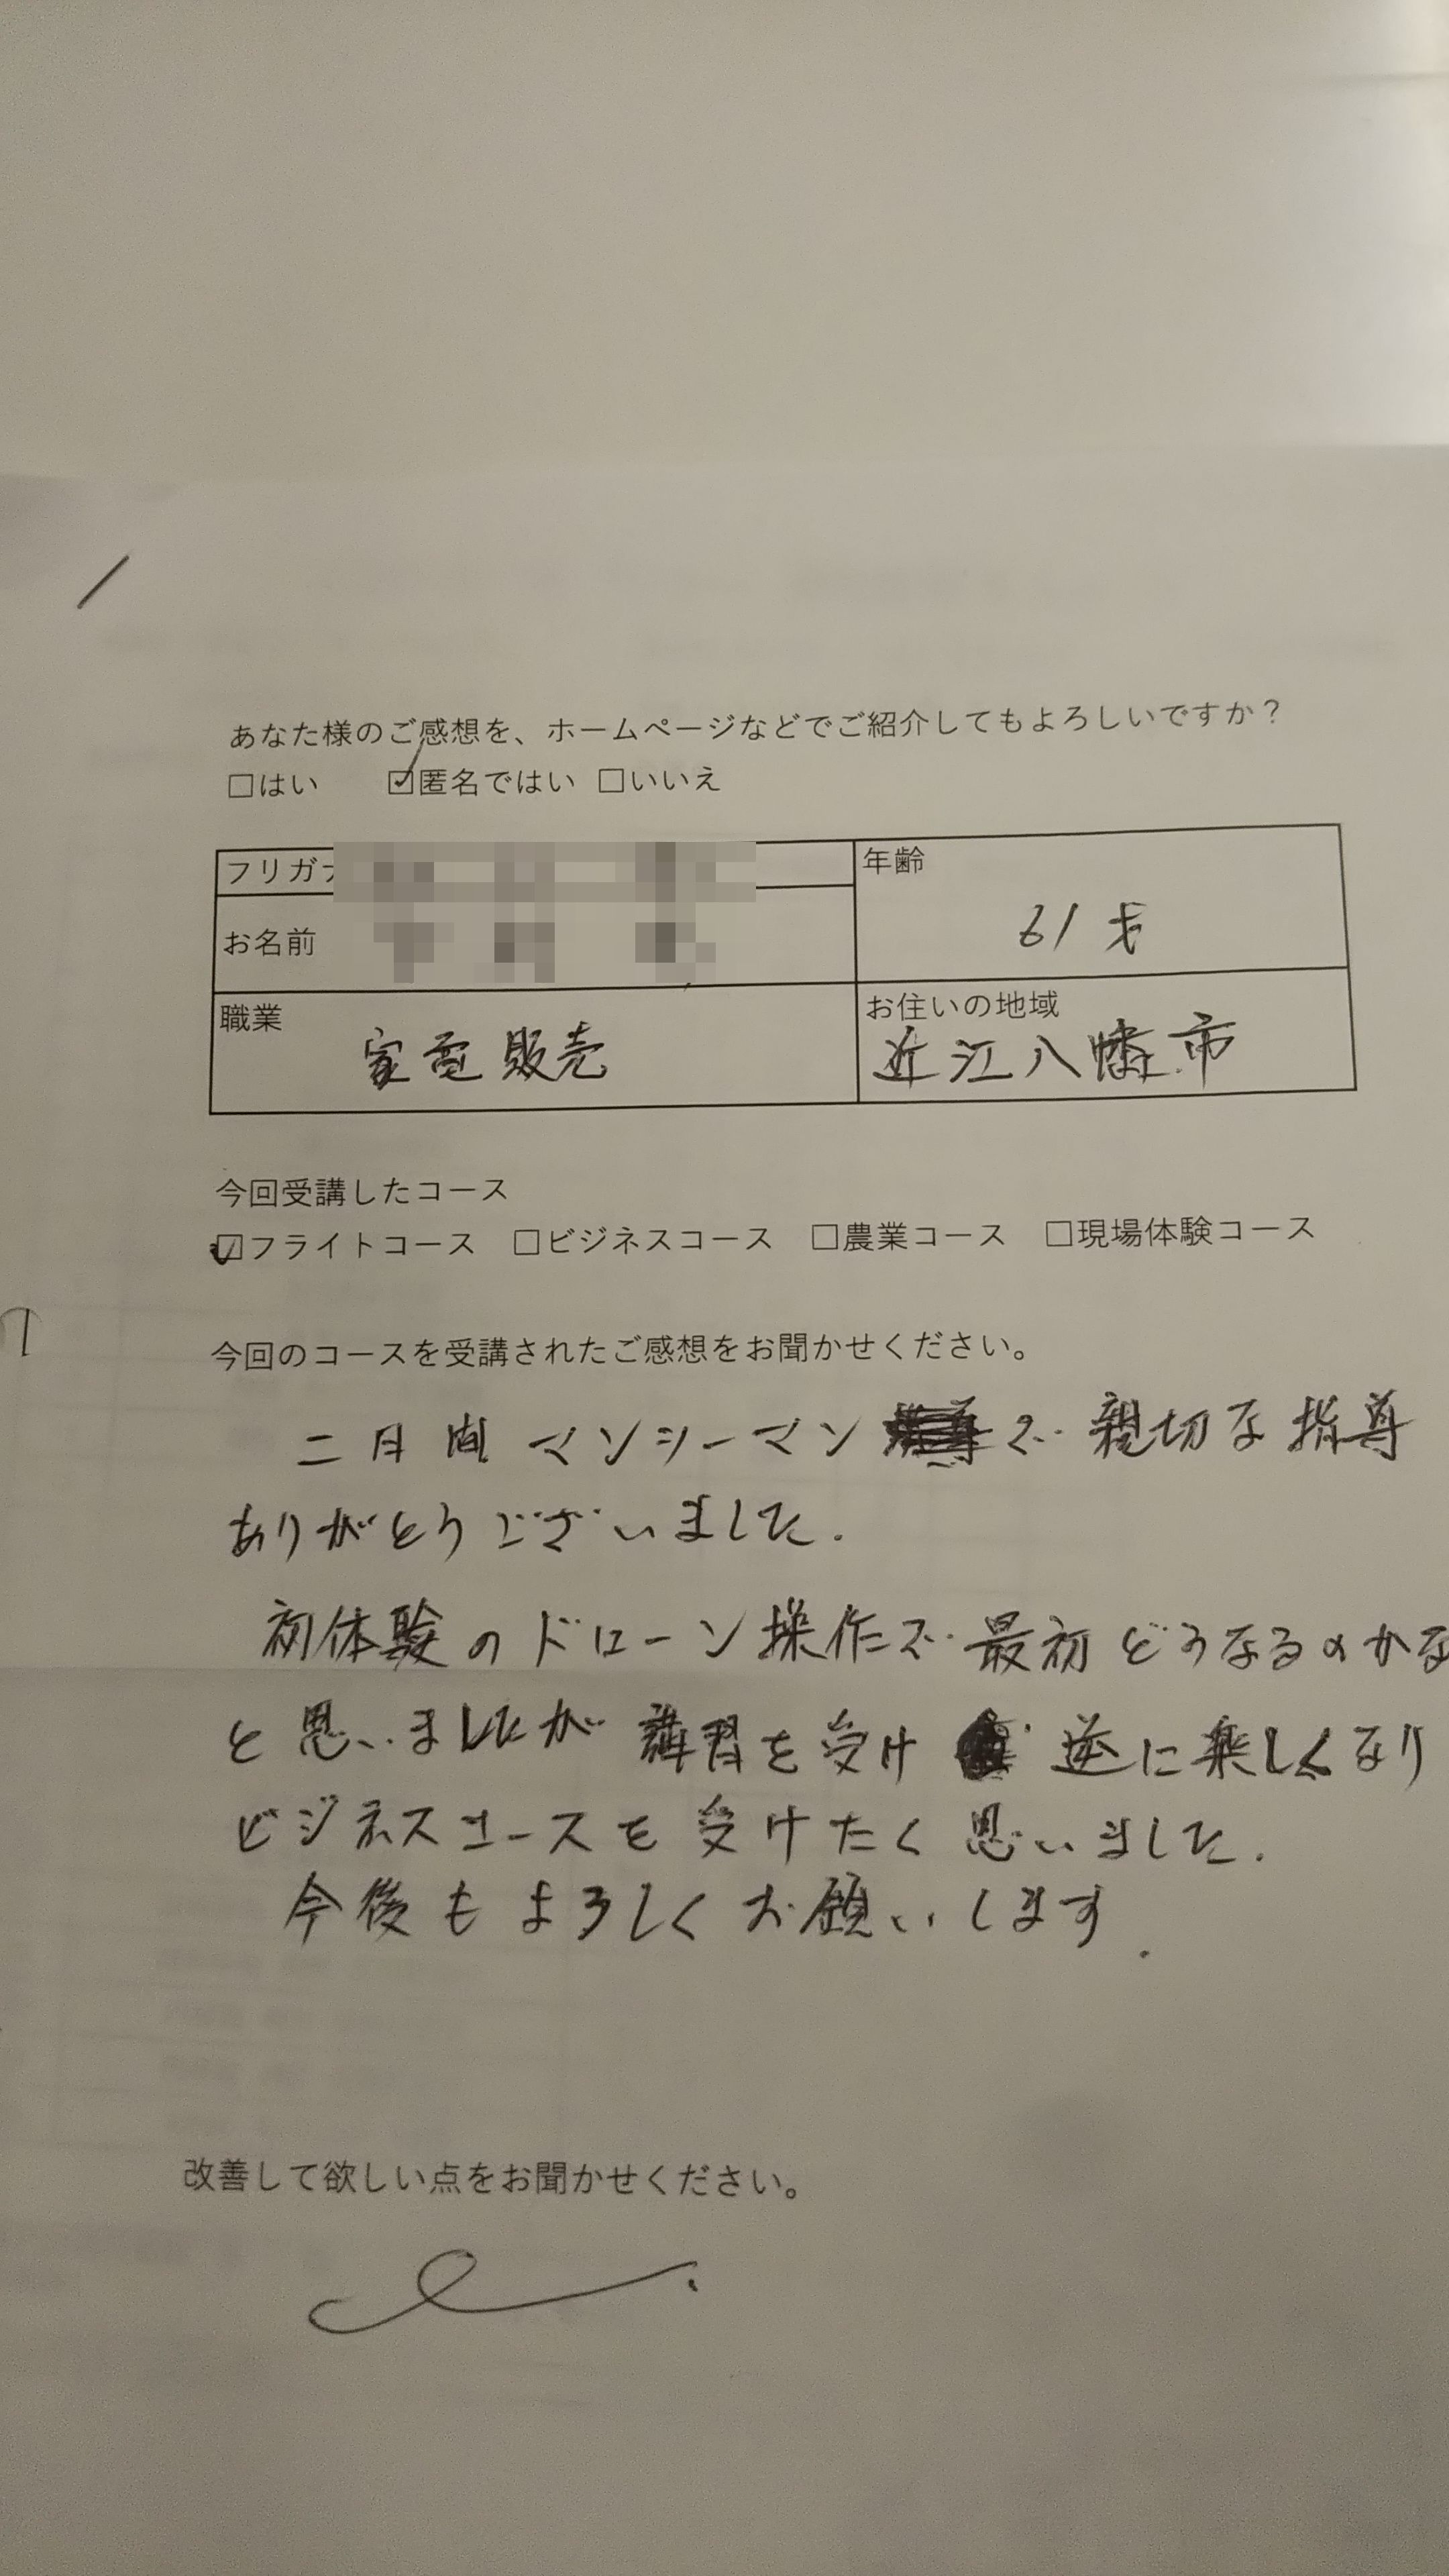 あなた様のご感想を、ホームページなどでご紹介してもよろしいですか？
□はい ☑匿名ではい □いいえ
フリガナ
お名前
年齢
61才
職業
家電販売
お住いの地域
近江八幡市
今回受講したコース
☑フライトコース □ビジネスコース □農業コース □現場体験コース
今回のコースを受講されたご感想をお聞かせください。
二日間マンシーマンで親切な指導
ありがとうございました.
初体験のドローン操作で最初どうなるのかな
と思いましたが講習を受け逆に楽しくなり
ビジネスコースも受けたく思いました.
今後もよろしくお願いします.
改善して欲しい点をお聞かせください。